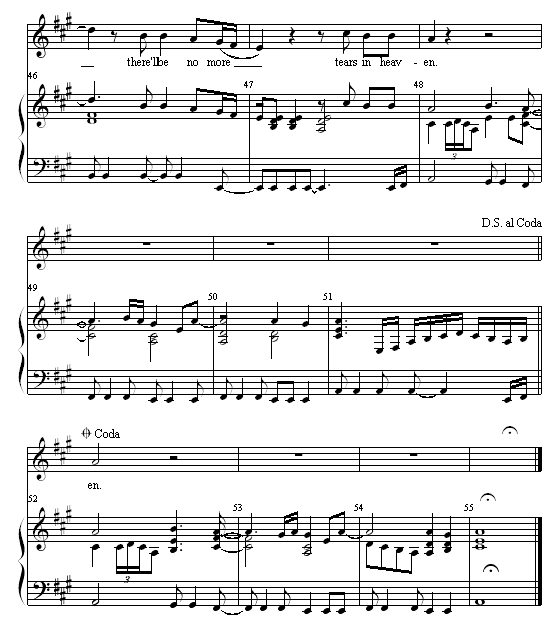 __ there'll be no more ____ tears in heav - en.
46 47 48
D.S. al Coda
49 50 51
Coda
en.
52 53 54 55
3 3